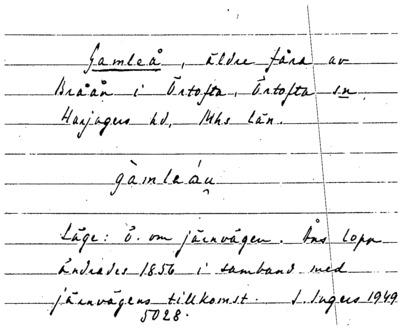 Gamleå, äldre fåra av
Bråån i Örtofta, Örtofta sn,
Harjagers hd, Mhs län.
gàmleáu̯
Läge: Ö. om järnvägen. Åns lopp
ändrades 1856 i samband med
järnvägens tillkomst. I. Ingers 1949.
5028.